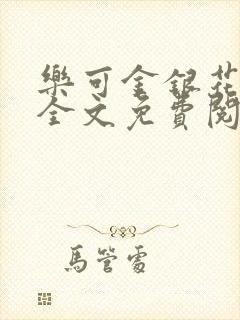 樂可金銀花
全文免費閱
馬管處